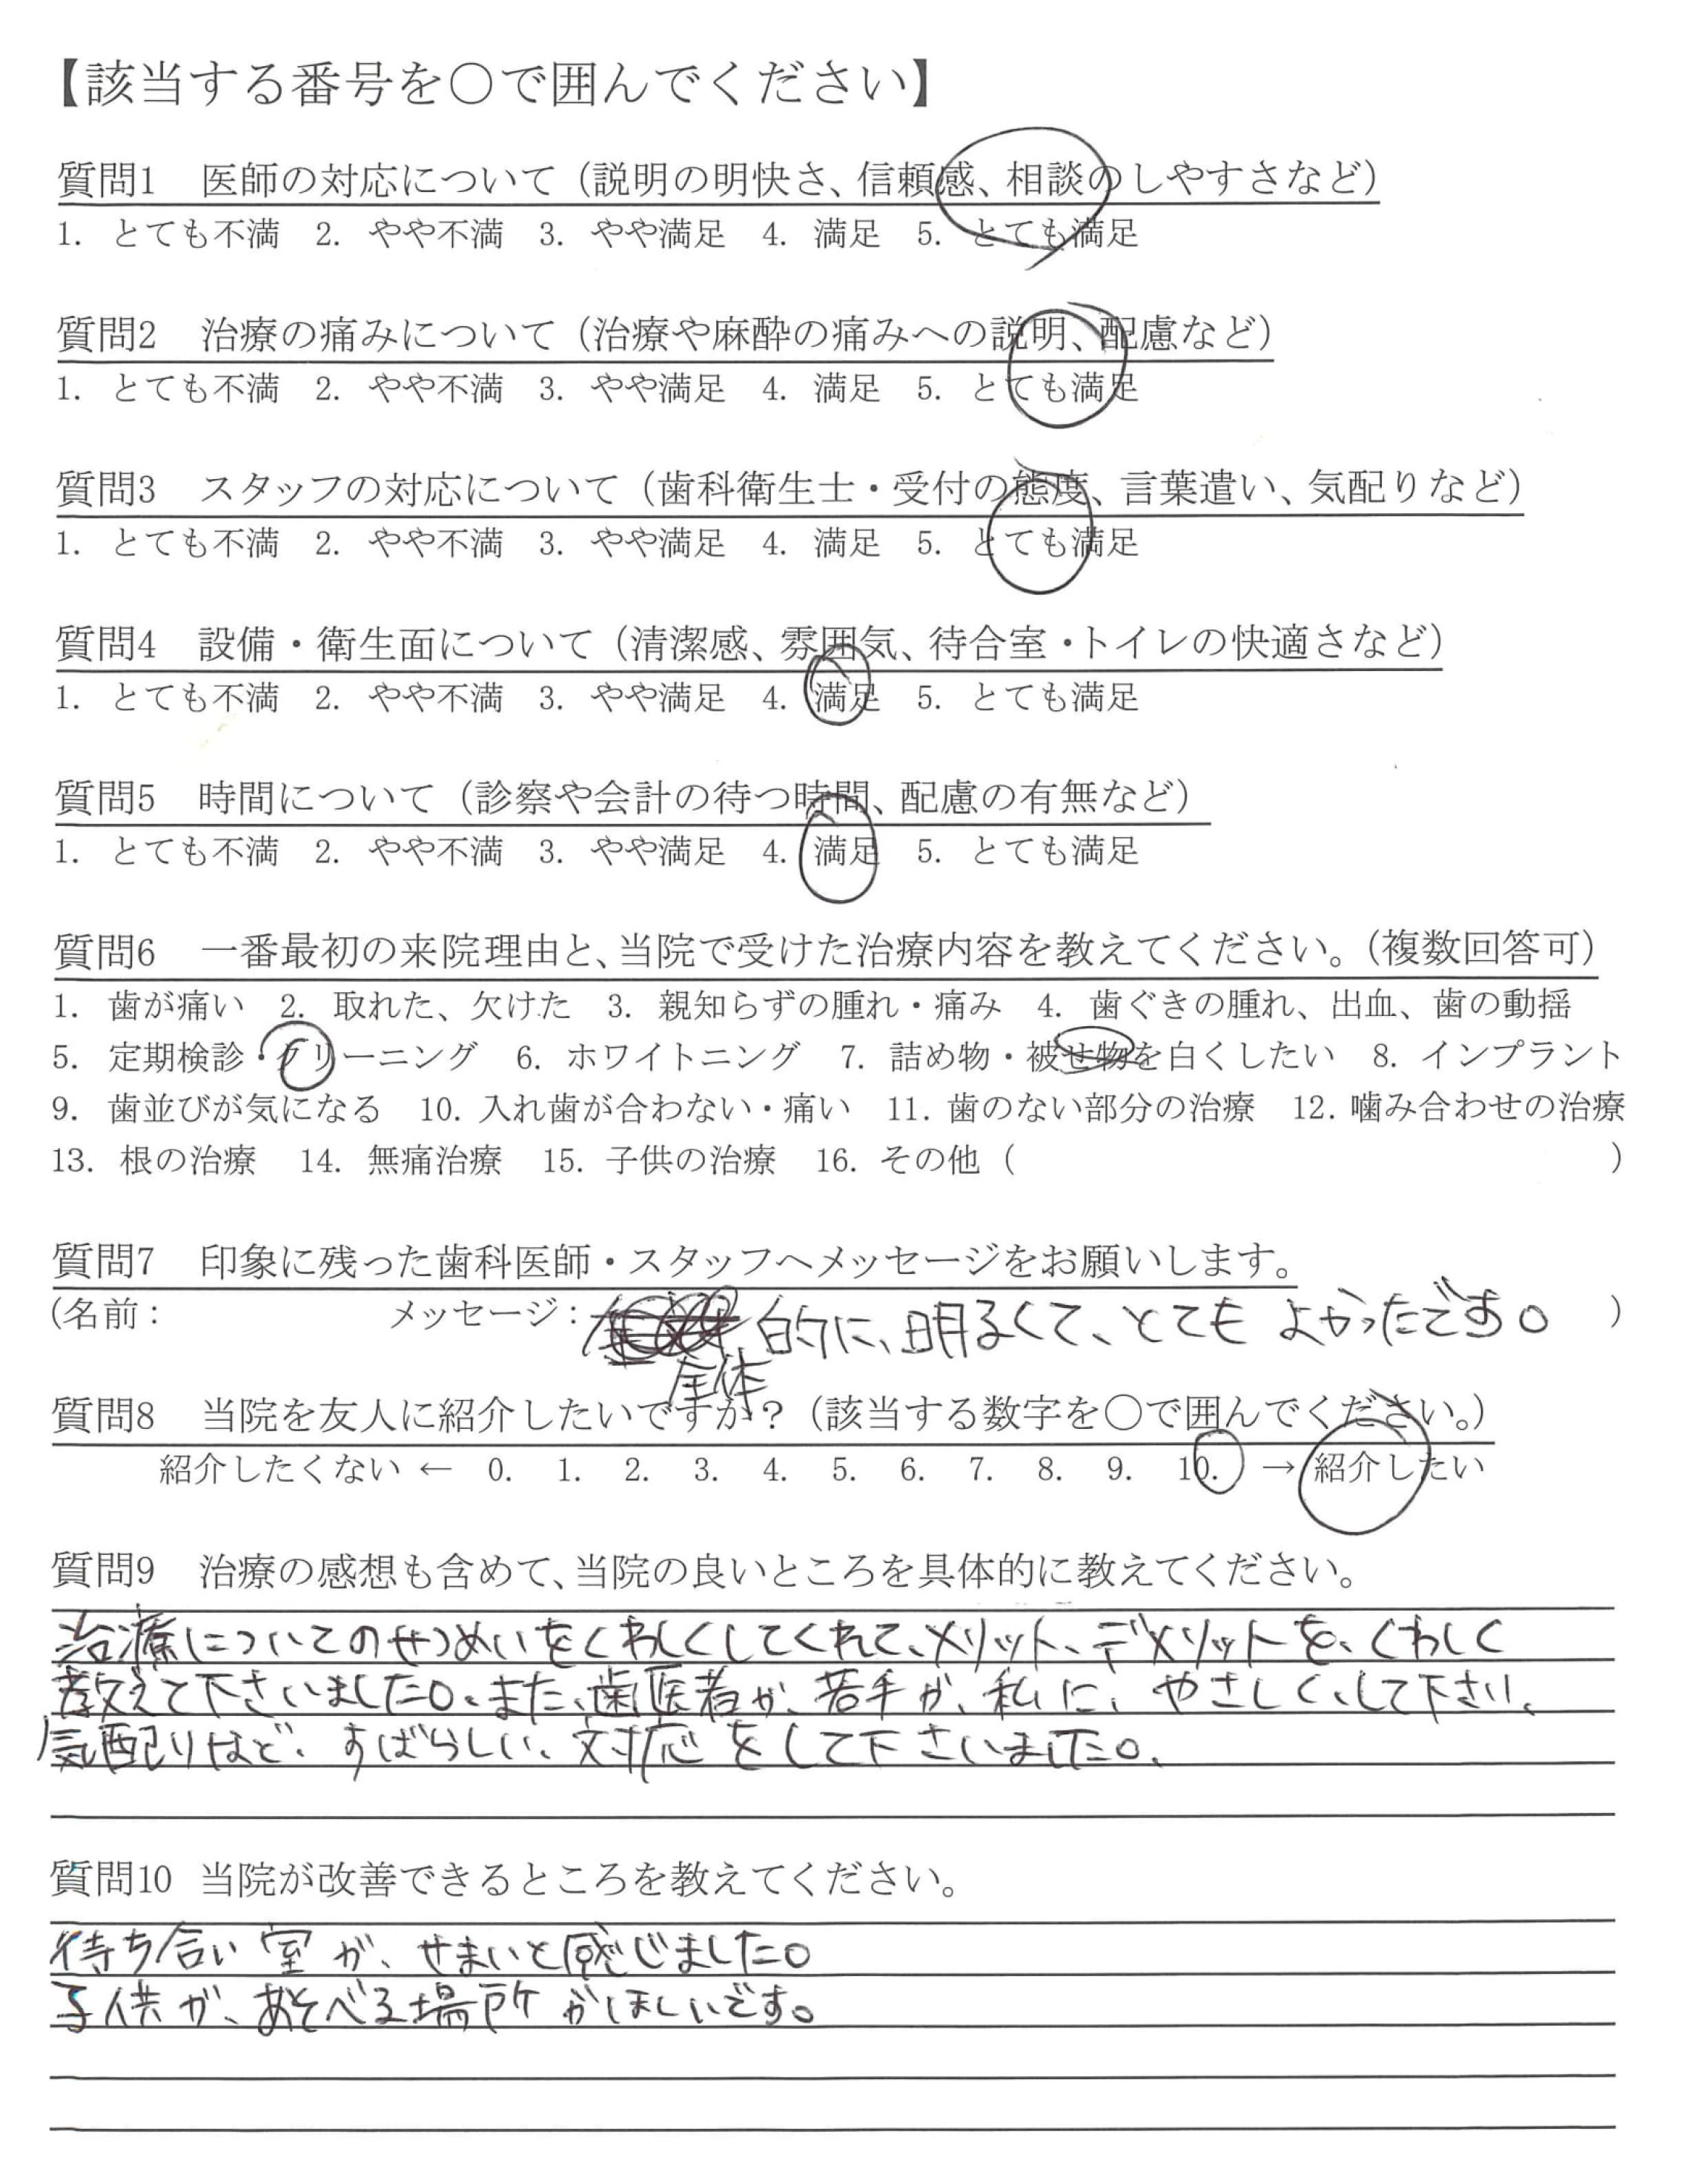 【該当する番号を〇で囲んでください】
質問1　医師の対応について（説明の明快さ、信頼感、相談のしやすさなど）
1. とても不満　2. やや不満　3. やや満足　4. 満足　5. とても満足
質問2　治療の痛みについて（治療や麻酔の痛みへの説明、配慮など）
1. とても不満　2. やや不満　3. やや満足　4. 満足　5. とても満足
質問3　スタッフの対応について（歯科衛生士・受付の態度、言葉遣い、気配りなど）
1. とても不満　2. やや不満　3. やや満足　4. 満足　5. とても満足
質問4　設備・衛生面について（清潔感、雰囲気、待合室・トイレの快適さなど）
1. とても不満　2. やや不満　3. やや満足　4. 満足　5. とても満足
質問5　時間について（診察や会計の待つ時間、配慮の有無など）
1. とても不満　2. やや不満　3. やや満足　4. 満足　5. とても満足
質問6　一番最初の来院理由と、当院で受けた治療内容を教えてください。（複数回答可）
1. 歯が痛い　2. 取れた、欠けた　3. 親知らずの腫れ・痛み　4. 歯ぐきの腫れ、出血、歯の動揺
5. 定期検診・クリーニング　6. ホワイトニング　7. 詰め物・被せ物を白くしたい　8. インプラント
9. 歯並びが気になる　10. 入れ歯が合わない・痛い　11. 歯のない部分の治療　12. 噛み合わせの治療
13. 根の治療　14. 無痛治療　15. 子供の治療　16. その他（　　　）
質問7　印象に残った歯科医師・スタッフへメッセージをお願いします。
（名前：　　　メッセージ：　的に、明るくて、とても よかったです。　）
全体
質問8　当院を友人に紹介したいですか？（該当する数字を〇で囲んでください。）
紹介したくない ← 0. 1. 2. 3. 4. 5. 6. 7. 8. 9. 10. → 紹介したい
質問9　治療の感想も含めて、当院の良いところを具体的に教えてください。
治療についてのせつめいをくわしくしてくれて、メリット、デメリットを、くわしく
教えて下さいました。また、歯医者が、若手が、私に、やさしく、して下さい、
気配りなど、すばらしい、対応をして下さいました。
質問10　当院が改善できるところを教えてください。
待ち合い室が、せまいと感じました。
子供が、あそべる場所がほしいです。